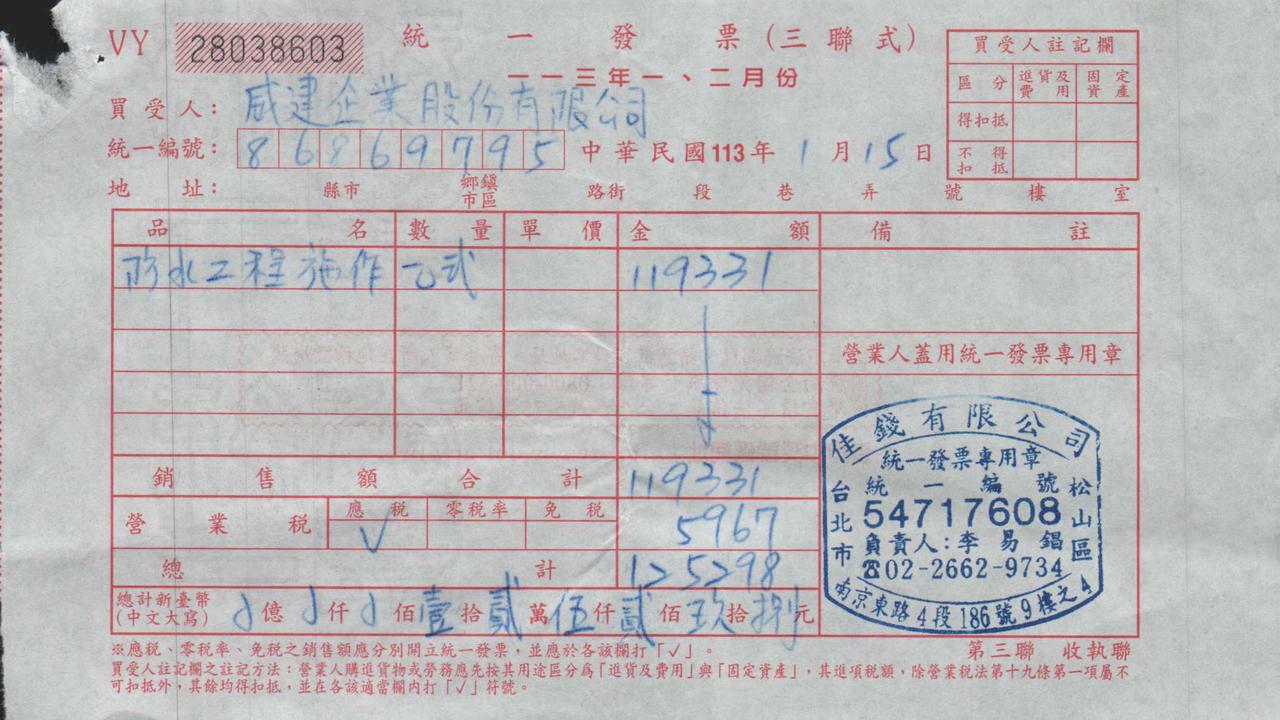 VY 28038603
統一發票(三聯式)
一一三年一、二月份
買受人註記欄
區分 進貨及費用 固定資產
得扣抵
不得扣抵
買受人: 威建企業股份有限公司
統一編號: 86869795 中華民國113年1月15日
地址: 縣市 鄉鎮市區 路街 段 巷 弄 號 樓 室
品名 數量 單價 金額 備註
防水工程施作 乙式 119331
營業人蓋用統一發票專用章
銷售額合計 119331
營業稅 應稅 零稅率 免稅 5967
✓
總計 125298
總計新臺幣(中文大寫) 億 仟 佰壹拾貳萬伍仟貳佰玖拾捌元
佳錢有限公司
統一發票專用章
統一編號
54717608
負責人:李易錩
☎02-2662-9734
台北市 松山區
南京東路4段186號9樓之4
※應稅、零稅率、免稅之銷售額應分別開立統一發票,並應於各該欄打「✓」。
第三聯 收執聯
買受人註記欄之註記方法:營業人購進貨物或勞務應先按其用途區分為「進貨及費用」與「固定資產」,其進項稅額,除營業稅法第十九條第一項屬不
可扣抵外,其餘均得扣抵,並在各該適當欄內打「✓」符號。